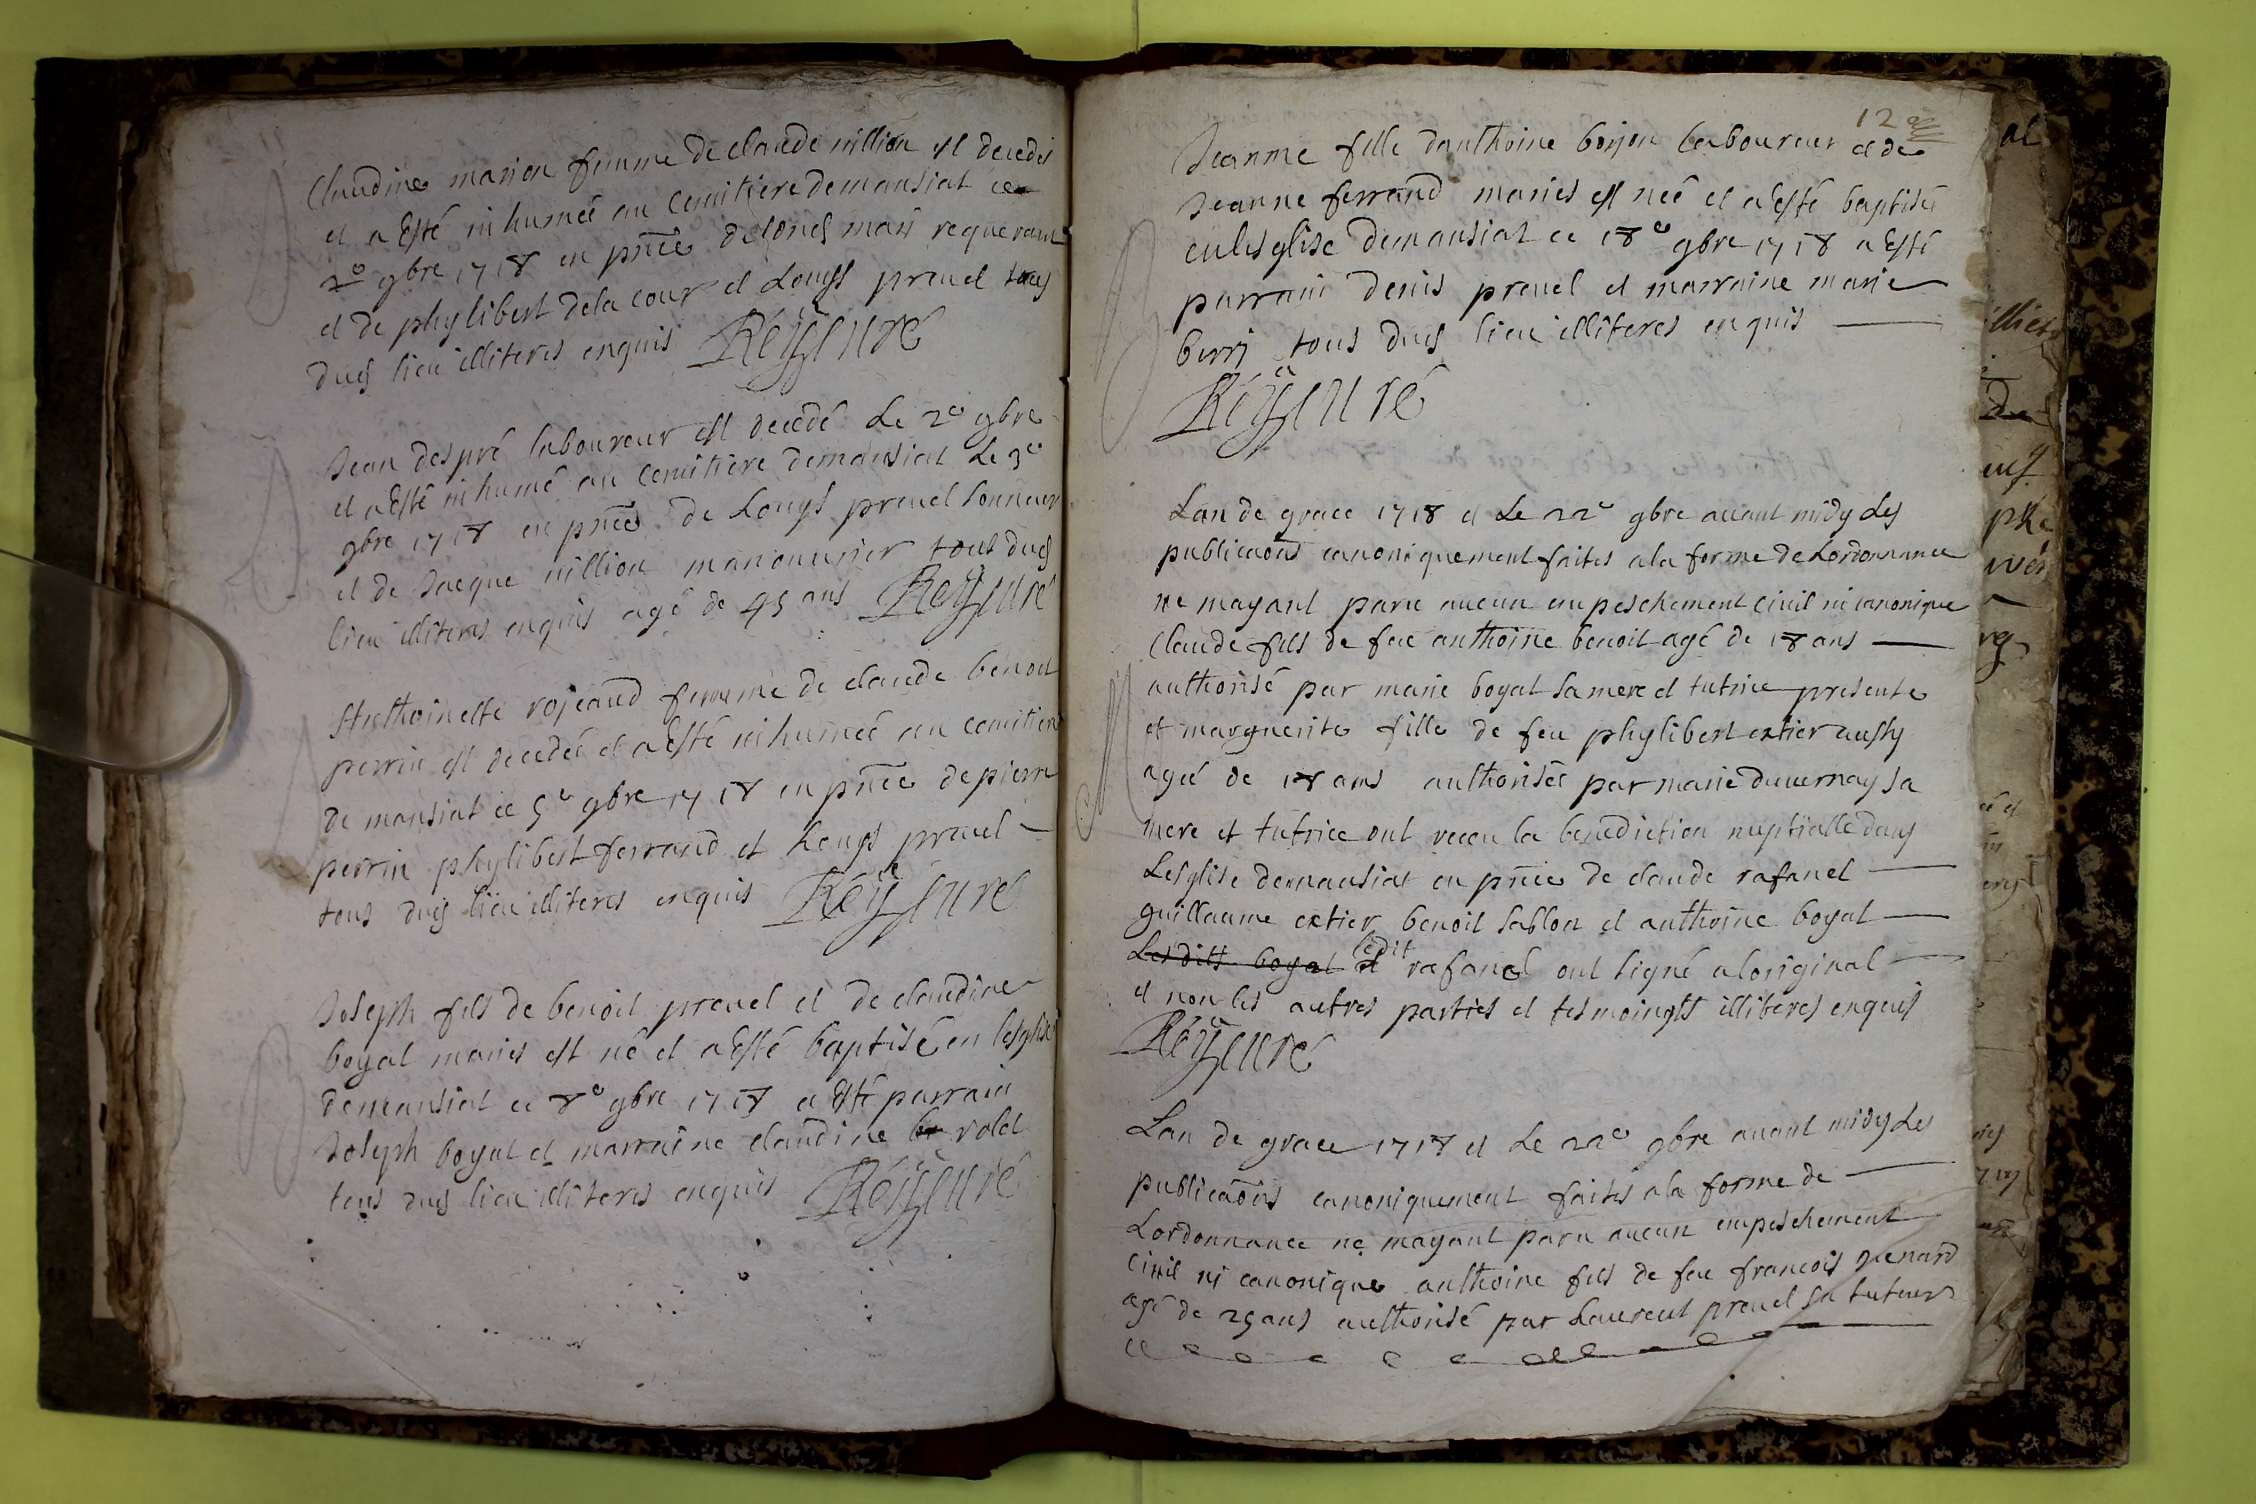 Claudine marion femme de claude nillion est decedée
et a esté inhumée au cemitiere de mansiat ce
2e 9bre 1718 en pnce de sond mari requerant
et de phylibert dela cour et Louys prevel tous
dud lieu illiteres enquis Réÿssuré
Jean despré laboureur est decedé Le 2e 9bre
et a esté inhumé au cemitiere demansiat Le 3e
9bre 1718 en pnce de Louys prevel sonneur
et de Jacque nillion manouvrier tous dud
lieu illiteres enquis agé de 45 ans Réÿssuré
Anthoinette rojeand femme de claude benoit
perrin est decedée et a esté inhumée au cemitiere
de mansiat ce 5e 9bre 1718 en pnce de pierre
perrin phylibert ferrand et Louys prevel
tous dud lieu illiteres enquis Réÿssuré
B
Joseph fils de benoit prevel et de claudine
boyat mariés est né et a esté baptisé en lesglise
demansiat ce 8e 9bre 1718 a esté parrain
Joseph boyat et marraine claudine rolet
tous dud lieu illiteres enquis Réÿssuré
12
Jeanne fille danthoine borjon laboureur et de
Jeanne ferrand mariés est née et a esté baptisée
en lesglise demansiat ce 18e 9bre 1718 a esté
B
parrain denis prevel et marraine marie
berri tous dud lieu illiteres enquis
Réÿssuré
Lan de grace 1718 et Le 22e 9bre avant midy Les
publicaons canoniquement faites a la forme de Lordonnance
ne mayant paru aucun empeschement civil ni canonique
Claude fils de feu anthoine benoit agé de 18 ans
M
authorisé par marie boyat sa mere et tutrice presente
et marguerite fille de feu phylibert extier aussy
agée de 18 ans authorisée par marie duvernay sa
mere et tutrice ont receu la benediction nuptialle dans
Lesglise demansiat en pnce de claude rafanel
guillaume extier benoit sablon et anthoine boyat
Lesdits boyat et ledit rafanel ont signé a loriginal
et non les autres parties et tesmoingts illiteres enquis
Réÿssuré
Lan de grace 1718 et Le 22e 9bre avant midy Les
publicaons canoniquement faites a la forme de
Lordonnance ne mayant paru aucun empeschement
civil ni canonique anthoine fils de feu francois
agé de 25 ans authorisé par Laurent prevel sn tuteur